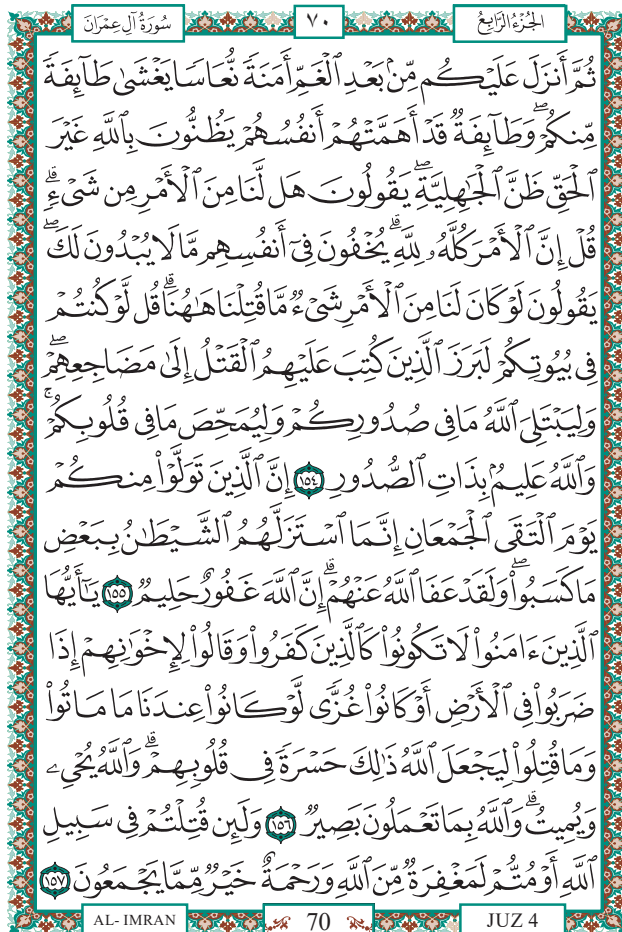 سُورَةُ آلِ عِمْرَانَ ٧٠ الجُزْءُ الرَّابِعُ
ثُمَّ أَنزَلَ عَلَيْكُم مِّنۢ بَعْدِ ٱلْغَمِّ أَمَنَةً نُّعَاسًا يَغْشَىٰ طَآئِفَةً
مِّنكُمْ ۖ وَطَآئِفَةٌ قَدْ أَهَمَّتْهُمْ أَنفُسُهُمْ يَظُنُّونَ بِٱللَّهِ غَيْرَ
ٱلْحَقِّ ظَنَّ ٱلْجَٰهِلِيَّةِ ۖ يَقُولُونَ هَل لَّنَا مِنَ ٱلْأَمْرِ مِن شَىْءٍ ۗ
قُلْ إِنَّ ٱلْأَمْرَ كُلَّهُۥ لِلَّهِ ۗ يُخْفُونَ فِىٓ أَنفُسِهِم مَّا لَا يُبْدُونَ لَكَ ۖ
يَقُولُونَ لَوْ كَانَ لَنَا مِنَ ٱلْأَمْرِ شَىْءٌ مَّا قُتِلْنَا هَٰهُنَا ۗ قُل لَّوْ كُنتُمْ
فِى بُيُوتِكُمْ لَبَرَزَ ٱلَّذِينَ كُتِبَ عَلَيْهِمُ ٱلْقَتْلُ إِلَىٰ مَضَاجِعِهِمْ ۖ
وَلِيَبْتَلِىَ ٱللَّهُ مَا فِى صُدُورِكُمْ وَلِيُمَحِّصَ مَا فِى قُلُوبِكُمْ ۚ
وَٱللَّهُ عَلِيمٌۢ بِذَاتِ ٱلصُّدُورِ ١٥٤ إِنَّ ٱلَّذِينَ تَوَلَّوْا۟ مِنكُمْ
يَوْمَ ٱلْتَقَى ٱلْجَمْعَانِ إِنَّمَا ٱسْتَزَلَّهُمُ ٱلشَّيْطَٰنُ بِبَعْضِ
مَا كَسَبُوا۟ ۖ وَلَقَدْ عَفَا ٱللَّهُ عَنْهُمْ ۗ إِنَّ ٱللَّهَ غَفُورٌ حَلِيمٌ ١٥٥ يَٰٓأَيُّهَا
ٱلَّذِينَ ءَامَنُوا۟ لَا تَكُونُوا۟ كَٱلَّذِينَ كَفَرُوا۟ وَقَالُوا۟ لِإِخْوَٰنِهِمْ إِذَا
ضَرَبُوا۟ فِى ٱلْأَرْضِ أَوْ كَانُوا۟ غُزًّى لَّوْ كَانُوا۟ عِندَنَا مَا مَاتُوا۟
وَمَا قُتِلُوا۟ لِيَجْعَلَ ٱللَّهُ ذَٰلِكَ حَسْرَةً فِى قُلُوبِهِمْ ۗ وَٱللَّهُ يُحْىِۦ
وَيُمِيتُ ۗ وَٱللَّهُ بِمَا تَعْمَلُونَ بَصِيرٌ ١٥٦ وَلَئِن قُتِلْتُمْ فِى سَبِيلِ
ٱللَّهِ أَوْ مُتُّمْ لَمَغْفِرَةٌ مِّنَ ٱللَّهِ وَرَحْمَةٌ خَيْرٌ مِّمَّا يَجْمَعُونَ ١٥٧
AL- IMRAN 70 JUZ 4